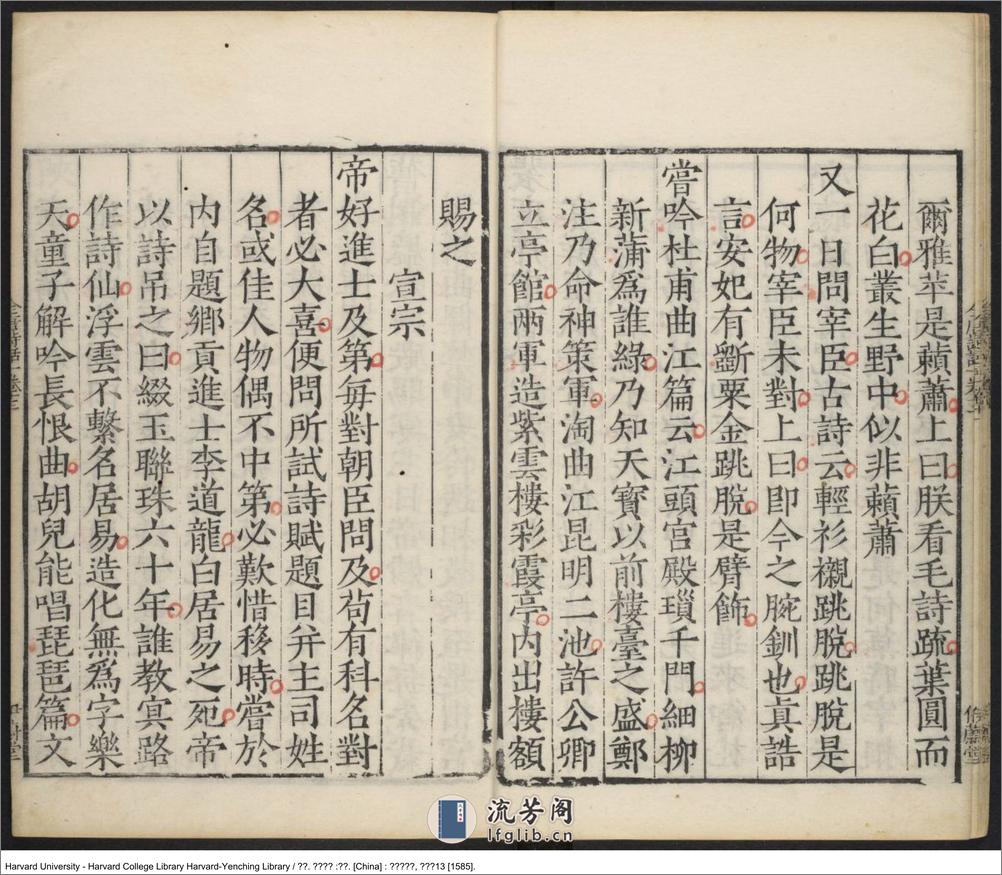 爾雅苹是藾蕭上曰朕看毛詩疏葉圓而
花白叢生野中似非藾蕭
又一日問宰臣古詩云輕衫襯跳脫跳脫是
何物宰臣未對上曰即今之腕釧也眞誥
言安妃有斵粟金跳脫是臂飾
嘗吟杜甫曲江篇云江頭宮殿瑣千門細柳
新蒲爲誰綠乃知天寶以前樓臺之盛鄭
注乃命神策軍淘曲江昆明二池許公卿
立亭館兩軍造紫雲樓彩霞亭內出樓額
賜之
宣宗
帝好進士及第每對朝臣問及苟有科名對
者必大喜便問所試詩賦題目幷主司姓
名或佳人物偶不中第必歎惜移時嘗於
內自題鄉貢進士李道龍白居易之死帝
以詩吊之曰綴玉聯珠六十年誰教冥路
作詩仙浮雲不繫名居易造化無爲字樂
天童子解吟長恨曲胡兒能唱琵琶篇文
流芳阁
lfglib.cn
Harvard University - Harvard College Library Harvard-Yenching Library / ??. ???? :??. [China] : ?????, ???13 [1585].